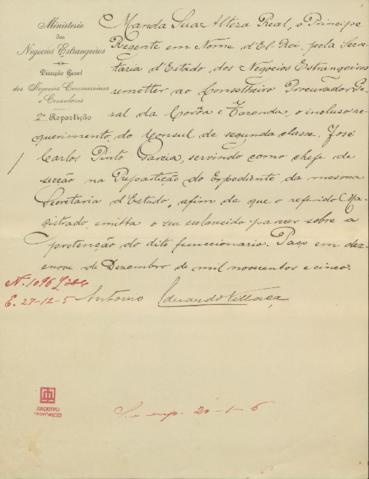 Ministerio
dos
Negocios Estrangeiros
Direcção Geral
dos Negocios Commerciaes
e Consulares
2ª Repartição
Manda Sua Alteza Real, o Principe
Regente em Nome d'El-Rei, pela Secre
taria d'Estado dos Negocios Estrangeiros
remetter ao Conselheiro Procurador Ge
ral da Corôa e Fazenda, o incluso re
querimento do Consul de segunda classe José
Carlos Pinto Garcia, servindo como chefe de
secção na Repartição do Expediente da mesma
Secretaria d'Estado, afim de que o referido Ma
gistrado emitta o seu esclarecido parecer sobre a
pretenção do dito funccionario. Paço em dez
enove de Dezembro de mil novecentos e cinco.
N. 1096
E. 27-12-5
Antonio Eduardo Villaça
20-1-6
ARQUIVO
HISTÓRICO